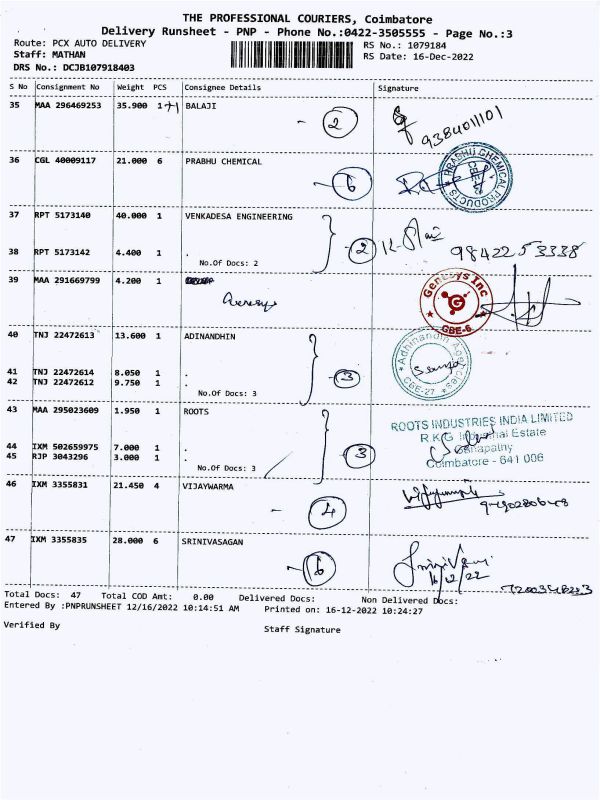 THE PROFESSIONAL COURIERS, Coimbatore
Delivery Runsheet - PNP - Phone No.:0422-3505555 - Page No.:3
Route: PCX AUTO DELIVERY
RS No.: 1079184
Staff: MATHAN
RS Date: 16-Dec-2022
DRS No.: DCJB107918403
S No Consignment No Weight PCS Consignee Details Signature
35 MAA 296469253 35.900 1+1 BALAJI - 2 9384011101
36 CGL 40009117 21.000 6 PRABHU CHEMICAL - 6
PRABHU CHEMICAL PRODUCTS
CBE
37 RPT 5173140 40.000 1 VENKADESA ENGINEERING
- 2 9842253338
38 RPT 5173142 4.400 1 .
No.Of Docs: 2
39 MAA 291669799 4.200 1
Genesys
Genesys Inc
G
GBE-6
40 TNJ 22472613 13.600 1 ADINANDHIN
41 TNJ 22472614 8.050 1 .
- 3
42 TNJ 22472612 9.750 1 .
No.Of Docs: 3
CBE-27
43 MAA 295023609 1.950 1 ROOTS
ROOTS INDUSTRIES INDIA LIMITED
R.K.G Industrial Estate
Ganapathy
Coimbatore - 641 006
44 IXM 502659975 7.000 1 .
- 3
45 RJP 3043296 3.000 1 .
No.Of Docs: 3
46 IXM 3355831 21.450 4 VIJAYWARMA
- 4
47 IXM 3355835 28.000 6 SRINIVASAGAN
- 6
16/12/22
Total Docs: 47 Total COD Amt: 0.00 Delivered Docs: Non Delivered Docs:
Entered By :PNPRUNSHEET 12/16/2022 10:14:51 AM Printed on: 16-12-2022 10:24:27
Verified By Staff Signature